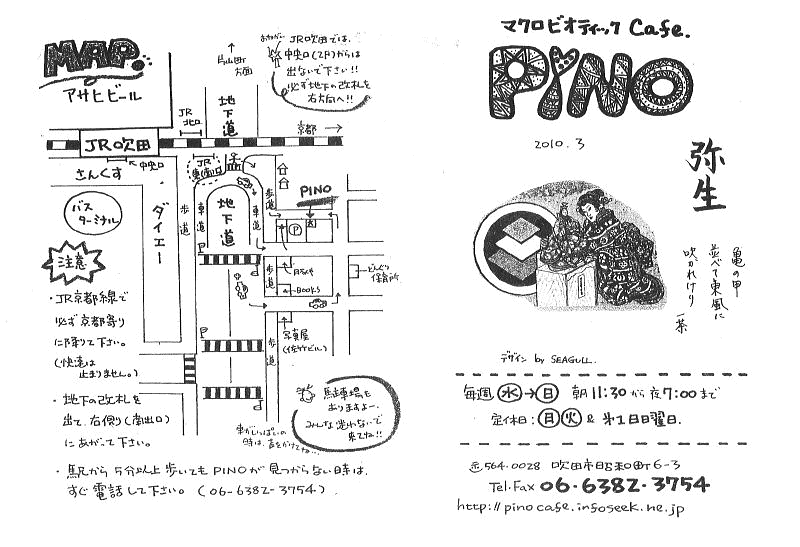 MAP.
アサヒビール
JR吹田
中央口
さんくす
バス
ターミナル
ダイエー
注意
・JR京都線で
必ず京都寄り
に降りて下さい。
(快速は
止まりません。)
・地下の改札を
出て、右側り(南出口)
にあがって下さい。
・駅から5分以上歩いてもPINOが見つからない時は、
すぐ電話して下さい。(06-6382-3754)
片山町
方面
JR吹田では、
中央口(2F)からは
出ないで下さい!!
必ず地下の改札を
右方向へ!!
地下道
JR
北口
京都
JR
歩道
車道
地下道
車道
歩道
PINO
P
歩道
BOOKS
どんぐり
保育所
写真屋
(佐竹ビル)
歩道
駐車場も
ありますよー。
みんな迷わないで
来てね!!
車がいっぱいの
時は、声をかけてね…
マクロビオティック Cafe.
PiNO
2010.3
弥生
亀の甲
並べて東風に
吹かれけり
一茶
デザイン by SEAGULL.
毎週(水)→(日) 朝11:30から夜7:00まで
定休日:(月)(火)& 第1日曜日.
〒564-0028 吹田市昭和町6-3
Tel.Fax 06-6382-3754
http://pinocafe.infoseek.ne.jp